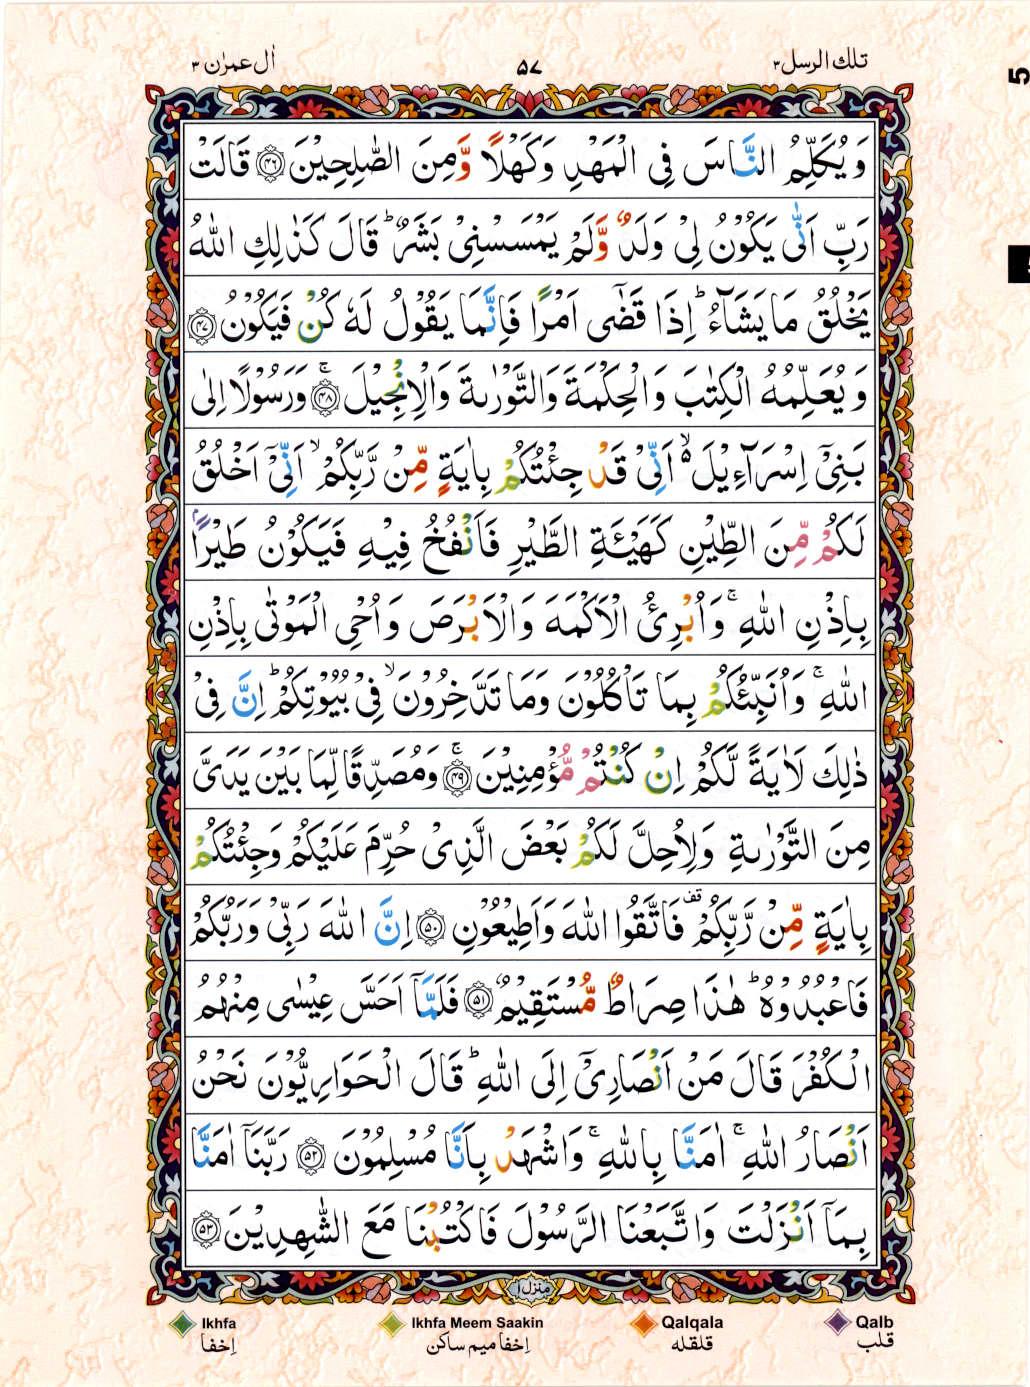 تلك الرسل ٣ ٥٧ اٰل عمرٰن ٣
5
وَيُكَلِّمُ النَّاسَ فِى الْمَهْدِ وَكَهْلًا وَّمِنَ الصّٰلِحِيْنَ ﴿۴۶﴾ قَالَتْ
رَبِّ اَنّٰى يَكُوْنُ لِىْ وَلَدٌ وَّلَمْ يَمْسَسْنِىْ بَشَرٌ ؕ قَالَ كَذٰلِكِ اللّٰهُ
يَخْلُقُ مَا يَشَآءُ ؕ اِذَا قَضٰٓى اَمْرًا فَاِنَّمَا يَقُوْلُ لَهٗ كُنْ فَيَكُوْنُ ﴿۴۷﴾
وَيُعَلِّمُهُ الْكِتٰبَ وَالْحِكْمَةَ وَالتَّوْرٰىةَ وَالْاِنْجِيْلَ ۚ ﴿۴۸﴾ وَرَسُوْلًا اِلٰى
بَنِىْٓ اِسْرَآءِيْلَ ۙ۬ اَنِّىْ قَدْ جِئْتُكُمْ بِاٰيَةٍ مِّنْ رَّبِّكُمْ ۙ اَنِّىْٓ اَخْلُقُ
لَكُمْ مِّنَ الطِّيْنِ كَهَيْئَةِ الطَّيْرِ فَاَنْفُخُ فِيْهِ فَيَكُوْنُ طَيْرًاۢ
بِاِذْنِ اللّٰهِ ۚ وَاُبْرِئُ الْاَكْمَهَ وَالْاَبْرَصَ وَاُحْىِ الْمَوْتٰى بِاِذْنِ
اللّٰهِ ۚ وَاُنَبِّئُكُمْ بِمَا تَاْكُلُوْنَ وَمَا تَدَّخِرُوْنَ ۙ فِىْ بُيُوْتِكُمْ ؕ اِنَّ فِىْ
ذٰلِكَ لَاٰيَةً لَّكُمْ اِنْ كُنْتُمْ مُّؤْمِنِيْنَ ۚ ﴿۴۹﴾ وَمُصَدِّقًا لِّمَا بَيْنَ يَدَىَّ
مِنَ التَّوْرٰىةِ وَلِاُحِلَّ لَكُمْ بَعْضَ الَّذِىْ حُرِّمَ عَلَيْكُمْ وَجِئْتُكُمْ
بِاٰيَةٍ مِّنْ رَّبِّكُمْ قف فَاتَّقُوا اللّٰهَ وَاَطِيْعُوْنِ ﴿۵۰﴾ اِنَّ اللّٰهَ رَبِّىْ وَرَبُّكُمْ
فَاعْبُدُوْهُ ؕ هٰذَا صِرَاطٌ مُّسْتَقِيْمٌ ﴿۵۱﴾ فَلَمَّآ اَحَسَّ عِيْسٰى مِنْهُمُ
الْكُفْرَ قَالَ مَنْ اَنْصَارِىْٓ اِلَى اللّٰهِ ؕ قَالَ الْحَوَارِيُّوْنَ نَحْنُ
اَنْصَارُ اللّٰهِ ۚ اٰمَنَّا بِاللّٰهِ ۚ وَاشْهَدْ بِاَنَّا مُسْلِمُوْنَ ﴿۵۲﴾ رَبَّنَآ اٰمَنَّا
بِمَآ اَنْزَلْتَ وَاتَّبَعْنَا الرَّسُوْلَ فَاكْتُبْنَا مَعَ الشّٰهِدِيْنَ ﴿۵۳﴾
منزل ١
Ikhfa Ikhfa Meem Saakin Qalqala Qalb
اِخفا اِخفا ميم ساكن قلقله قلب